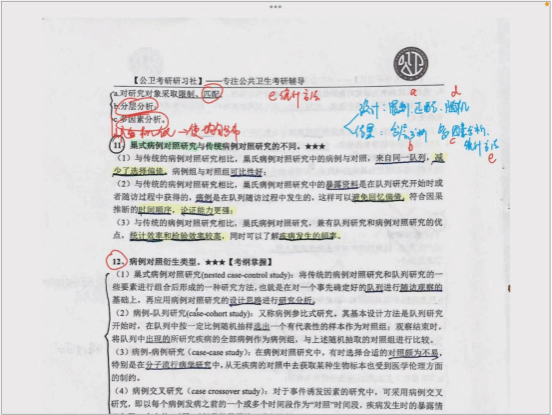 【公卫考研研习社】——专注公共卫生考研辅导
a.对研究对象采取限制、匹配 e统计方法
b.分层分析
c.多因素分析。
a d
设计：限制、匹配、随机
分析、多因素分析、
b c 统计方法
e
11、巢式病例对照研究与传统病例对照研究的不同。★★★
（1）与传统的病例对照研究相比，巢式病例对照研究中的病例与对照，来自同一队列，减
少了选择偏倚，病例组与对照组可比性好；
（2）与传统的病例对照研究相比，巢式病例对照研究中的暴露资料是在队列研究开始时或
者随访过程中获得的，病例是在队列随访过程中发生的，这样可以避免回忆偏倚，符合因果
推断的时间顺序，论证能力更强；
（3）与传统的病例对照研究相比，巢氏病例对照研究，兼有队列研究和病例对照研究的优
点，统计效率和检验效率较高，同时可以了解疾病发生的频率。
12、病例对照衍生类型。★★★【考纲掌握】
（1）巢式病例对照研究(nested case-control study)：将传统的病例对照研究和队列研究的一
些要素进行组合后形成的一种研究方法，也就是在对一个事先确定好的队列进行随访观察的
基础上，再应用病例对照研究的设计思路进行研究分析。
（2）病例-队列研究(case-cohort study)：又称病例参比式研究。其基本设计方法是队列研究
开始时，在队列中按一定比例随机抽样选出一个有代表性的样本作为对照组；观察结束时，
将队列中出现的所研究疾病的全部病例作为病例组，与上述随机抽取的对照组进行比较。
（3）病例-病例研究（case-case study）：在病例对照研究中，有时选择合适的对照颇为不易，
特别是在分子流行病学研究中，从无疾病的对照中去获取某种生物标本也受到医学伦理方面
的制约。
（4）病例交叉研究（case crossover study）：对于事件诱发因素的研究中，可采用病例交叉
研究，即以每个病例发病之前的一个或多个时间段作为“对照”时间段，疾病发生时的暴露情